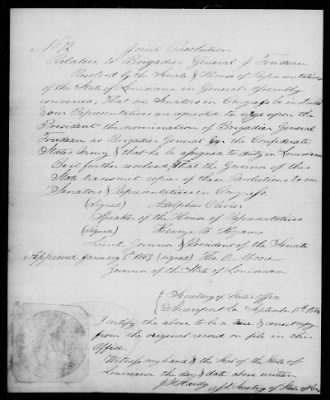 No 12 Joint Resolution
Relative to Brigadier General J. Trudeau
Resolved by the Senate & House of Representatives
of the State of Louisiana in General Assembly
convened, That our Senators in Congress be instructed
& our Representatives are requested to urge upon the
President the nomination of Brigadier General
Trudeau as Brigadier General for the Confederate
States Army & that he be assigned to duty in Louisiana
Be it further resolved, That the Governor of this
State transmit copies of these Resolutions to our
Senators & Representatives in Congress
(signed) Adolphus Olivier
Speaker of the House of Representatives
(signed) Henry M. Hyams
Lieut Governor & President of the Senate
Approved January 3d 1863 (signed) Tho. O. Moore
Governor of the State of Louisiana
Secretary of States Office
Shreveport La September 15th
I certify the above to be a true & correct copy
from the original record on file in this
Office
Witness my hand & the Seal of the State of
Louisiana the day & date above written
Secretary of State of